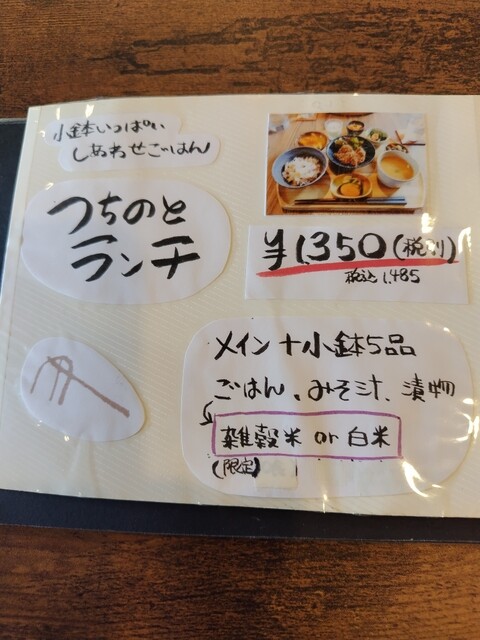 小鉢いっぱい
しあわせごはん
つちのと
ランチ
¥1,350(税別)
税込1,485
メイン+小鉢5品
ごはん、みそ汁、漬物
雑穀米 or 白米
(限定)